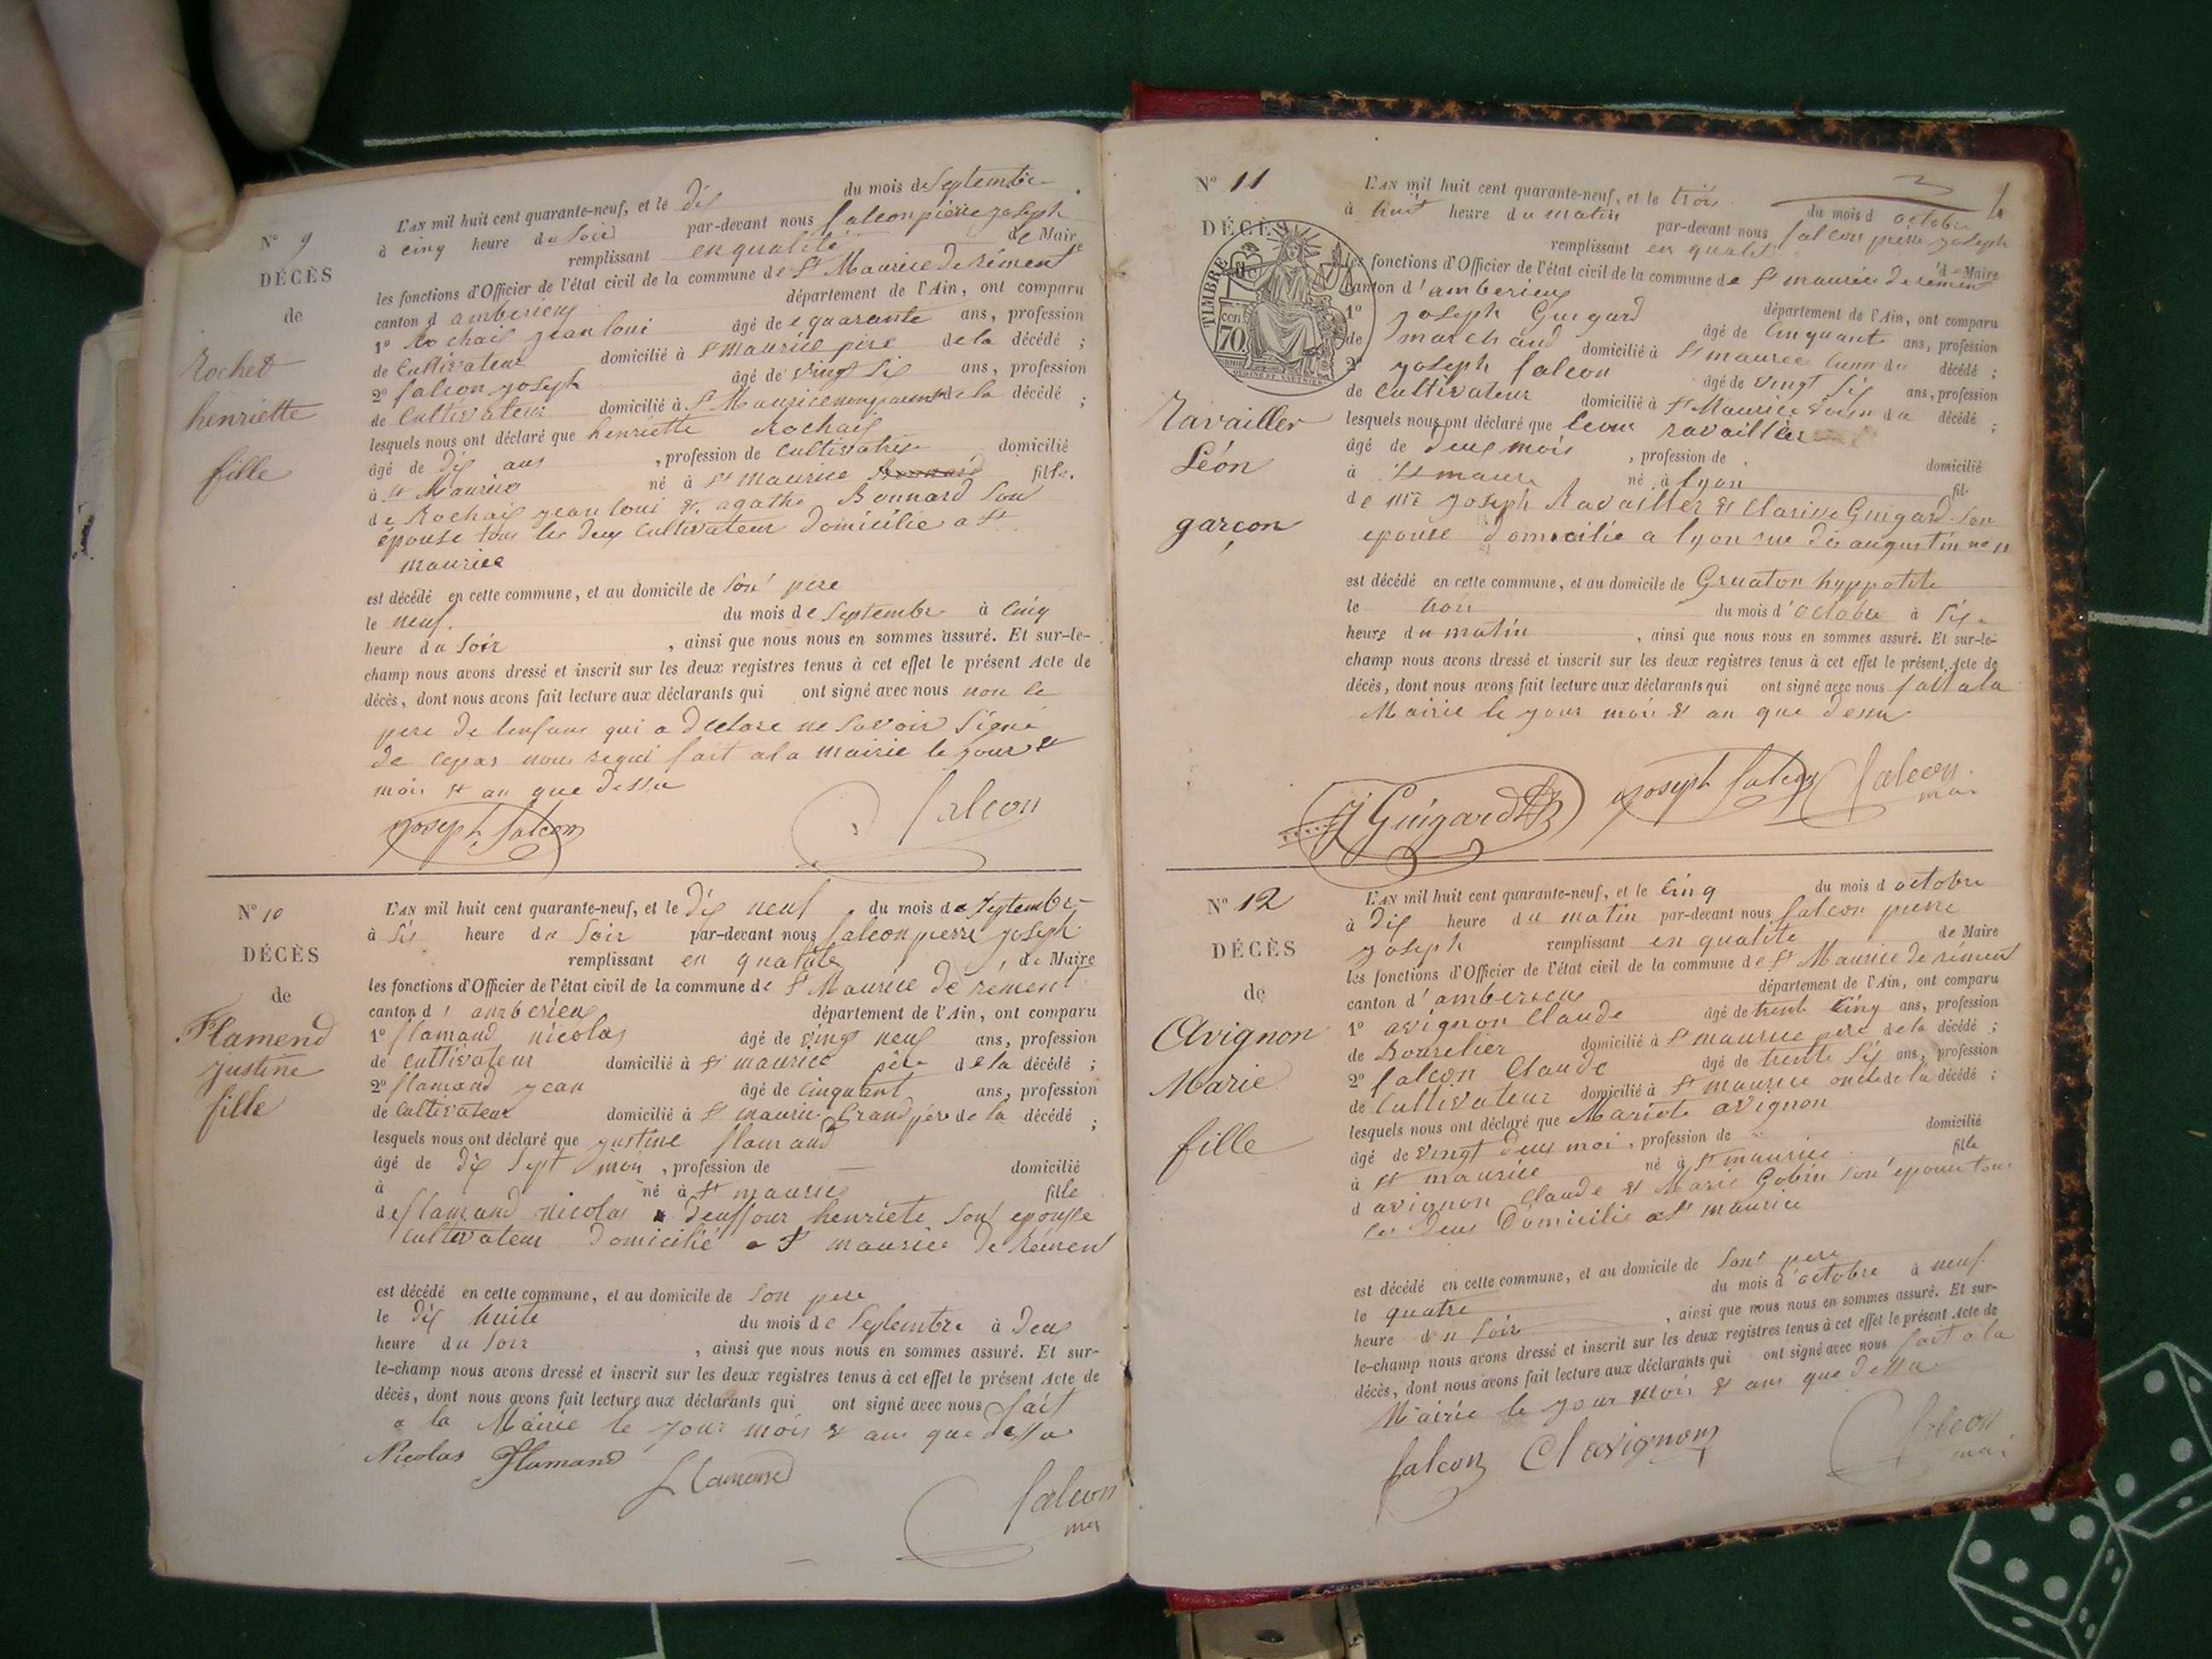 N° 9
DÉCÈS
de
Rochet
henriette
fille
L'AN mil huit cent quarante-neuf, et le dix du mois de septembre
à cinq heure du soir par-devant nous falcon pierre joseph
remplissant en qualité de Maire
les fonctions d'Officier de l'état civil de la commune de St Maurice de rément
canton d amberieux département de l'Ain, ont comparu
1° Rochaix jean loui âgé de quarante ans, profession
de Cultivateur domicilié à St maurice pere de la décédé ;
2° falcon joseph âgé de vingt six ans, profession
de Cultivateur domicilié à St Maurice non parent de la décédé ;
lesquels nous ont déclaré que henriette Rochaix
âgé de dix ans , profession de Cultivatrice domicilié
à St Maurice né à St maurice fille.
de Rochaix jean loui & agathe Bonnard son
épouse tous les deux Cultivateur domicilie a St
maurice
est décédé en cette commune, et au domicile de son pere
le neuf. du mois de Septembre à cinq
heure du soir , ainsi que nous nous en sommes assuré. Et sur-le-
champ nous avons dressé et inscrit sur les deux registres tenus à cet effet le présent Acte de
décès, dont nous avons fait lecture aux déclarants qui ont signé avec nous non le
pere de lenfant qui a declare ne savoir signé
de cepar nous requi fait ala mairie le jour &
moi & an que dessu
joseph falcon falcon
N° 10
DÉCÈS
de
Flamend
justine
fille
L'AN mil huit cent quarante-neuf, et le dix neuf du mois de septembre
à six heure du soir par-devant nous falcon pierre joseph
remplissant en qualité de Maire
les fonctions d'Officier de l'état civil de la commune de St Maurice de rément
canton d'amberieux département de l'Ain, ont comparu
1° flamand nicolas âgé de vingt neuf ans, profession
de cultivateur domicilié à St maurice père de la décédé ;
2° flamand jean âgé de cinquant ans, profession
de cultivateur domicilié à St maurice Grand père de la décédé ;
lesquels nous ont déclaré que justine flamand
âgé de dix sept moi , profession de domicilié
à né à St maurice fille
de flamand nicolas henriete son epouse
cultivateur domicilié a St maurice de Rément
est décédé en cette commune, et au domicile de son pere
le dix huite du mois de Septembre à deux
heure du soir , ainsi que nous nous en sommes assuré. Et sur-
le-champ nous avons dressé et inscrit sur les deux registres tenus à cet effet le présent Acte de
décès, dont nous avons fait lecture aux déclarants qui ont signé avec nous fait
a la Mairie le jour mois & an que dessu
Nicolas Flamand flamand
falcon
mer
N° 11
DÉCÈS
TIMBRE
cent
70
Ravailler
Léon
garçon
L'AN mil huit cent quarante-neuf, et le trois du mois d octobre
à huit heure du matin par-devant nous falcon pierre joseph
remplissant en qualité de Maire
les fonctions d'Officier de l'état civil de la commune de St maurice de rément
canton d'amberieux département de l'Ain, ont comparu
1° joseph Guigard âgé de cinquant ans, profession
de marchand domicilié à St maurice du décédé ;
2° joseph falcon âgé de vingt six ans, profession
de cultivateur domicilié à St Maurice du décédé ;
lesquels nous ont déclaré que leon ravaillier
âgé de deux mois , profession de domicilié
à né à lyon fil
de mr joseph Ravailler & Clarisse Guigard son
epouse domicilié a lyon rue des augustin no 11
est décédé en cette commune, et au domicile de Gruaton hyppolite
le trois du mois d'octobre à six
heure du matin , ainsi que nous nous en sommes assuré. Et sur-le-
champ nous avons dressé et inscrit sur les deux registres tenus à cet effet le présent Acte de
décès, dont nous avons fait lecture aux déclarants qui ont signé avec nous fait a la
Mairie le jour moi & an que dessu
J Guigard joseph falcon falcon
mai
N° 12
DÉCÈS
de
Avignon
Marie
fille
L'AN mil huit cent quarante-neuf, et le cinq du mois d octobre
à dix heure du matin par-devant nous falcon pierre
joseph remplissant en qualité de Maire
les fonctions d'Officier de l'état civil de la commune de St Maurice de rément
canton d'amberieux département de l'Ain, ont comparu
1° avignon Claude âgé de trente cinq ans, profession
de Bourelier domicilié à St maurice pere de la décédé ;
2° falcon Claude âgé de trente six ans, profession
de Cultivateur domicilié à St maurice oncle de la décédé ;
lesquels nous ont déclaré que Mariete avignon
âgé de vingt deux moi , profession de domicilié
à St maurice né à St maurice fille
d avignon Claude & Marie Gobin son epouse tous
les deux Domicilié a St maurice
est décédé en cette commune, et au domicile de son pere
le quatre du mois d'octobre à neuf
heure du soir , ainsi que nous nous en sommes assuré. Et sur-
le-champ nous avons dressé et inscrit sur les deux registres tenus à cet effet le présent Acte de
décès, dont nous avons fait lecture aux déclarants qui ont signé avec nous fait a la
Mairie le jour mois & an que dessu
falcon Cl avignon falcon
mai